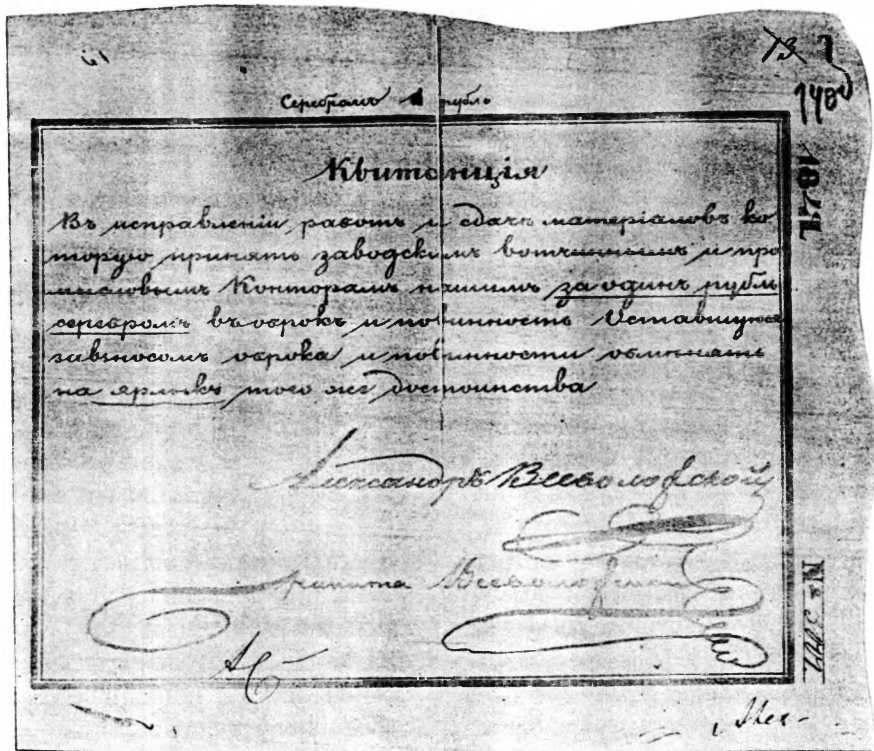 73
1480
Серебромъ 1 рубль
Квитанція
Въ исправленіи работъ и сдачѣ матеріаловъ ко
торую принять заводскимъ вотчиннымъ и про
мысловымъ Конторамъ нашимъ за одинъ рубль
серебромъ въ оброкъ и повинность Оставшуюся
завзносомъ оброка и повинности обмѣнять
на ярлыкъ того же достоинства
Александръ Всеволожской
Никита Всеволожской
184
№